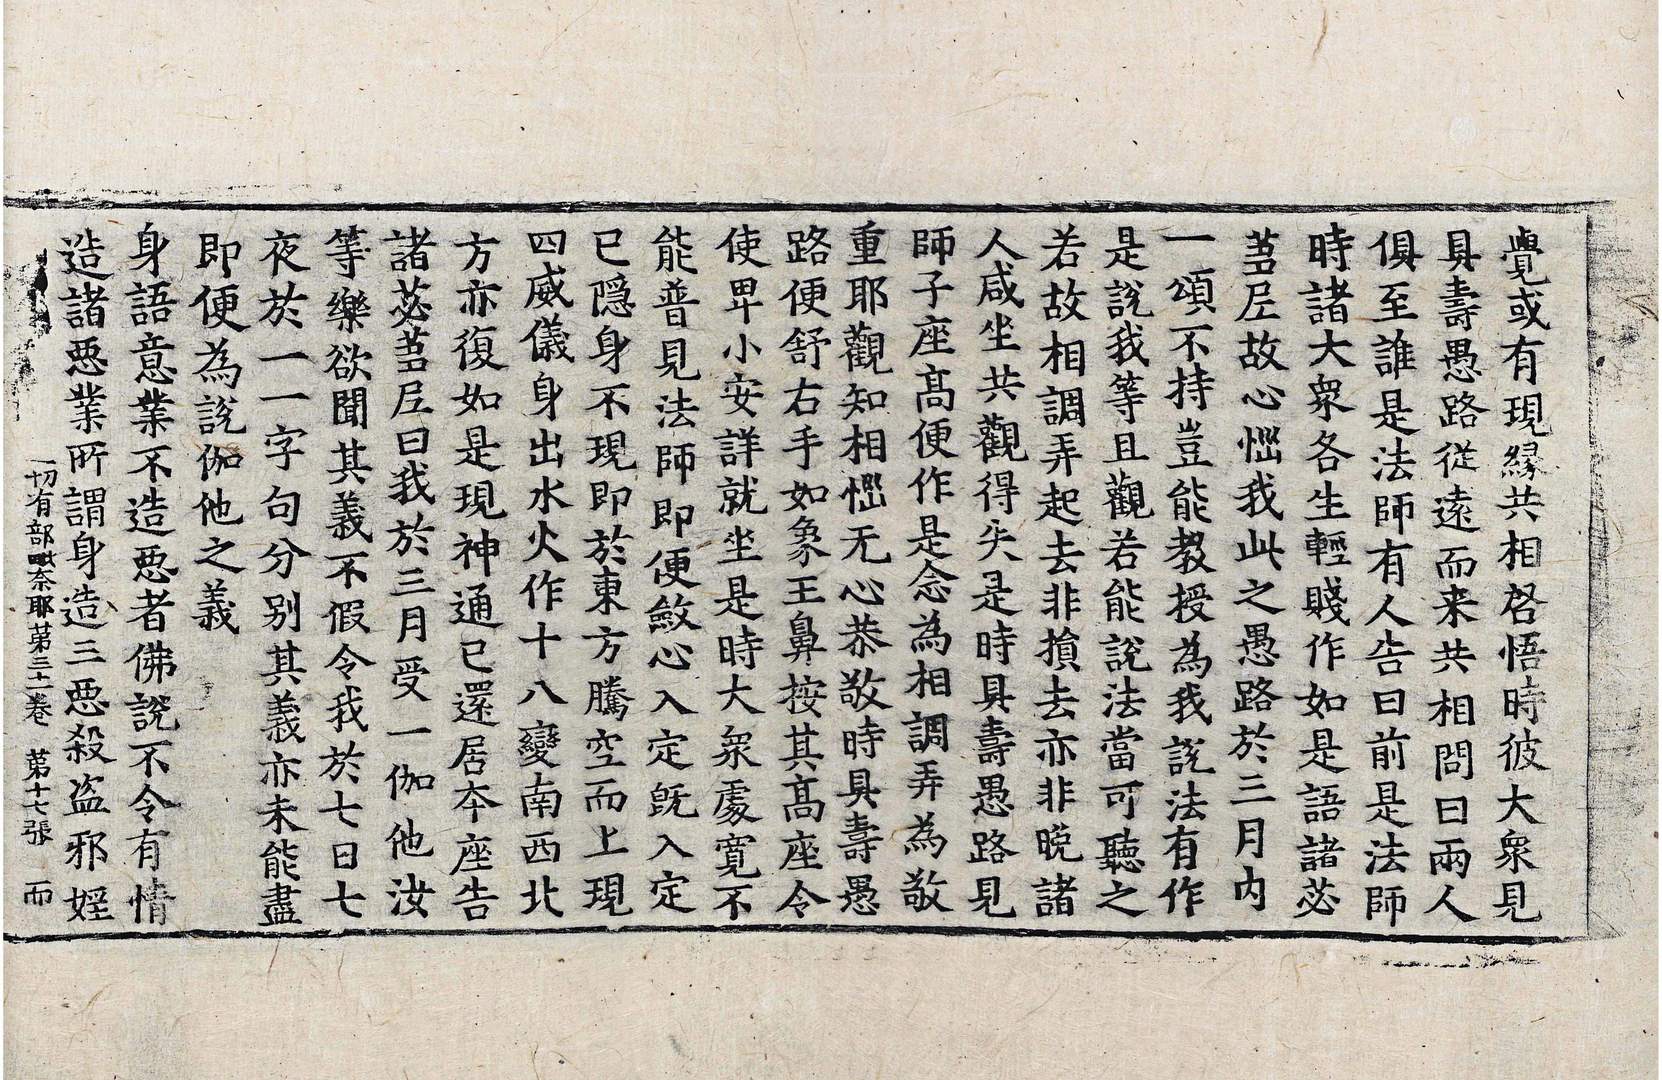 覺或有現縁共相啓悟時彼大衆見
具壽愚路從遠而来共相問曰兩人
俱至誰是法師有人告曰前是法師
時諸大衆各生輕賤作如是語諸苾
蒭尼故心惱我此之愚路於三月内
一頌不持豈能教授為我說法有作
是說我等且觀若能說法當可聽之
若故相調弄起去非損去亦非晚諸
人咸坐共觀得失是時具壽愚路見
師子座髙便作是念為相調弄為敬
重耶觀知相惱无心恭敬時具壽愚
路便舒右手如象王鼻按其髙座令
使卑小安詳就坐是時大衆處寬不
能普見法師即便斂心入定旣入定
已隱身不現即於東方騰空而上現
四威儀身出水火作十八變南西北
方亦復如是現神通已還居本座告
諸苾蒭尼曰我於三月受一伽他汝
等樂欲聞其義不假令我於七日七
夜於一一字句分別其義亦未能盡
即便為說伽他之義
身語意業不造惡者佛說不令有情
造諸惡業所謂身造三惡殺盗邪婬
一切有部毗奈耶第三十一卷　第十七張　而